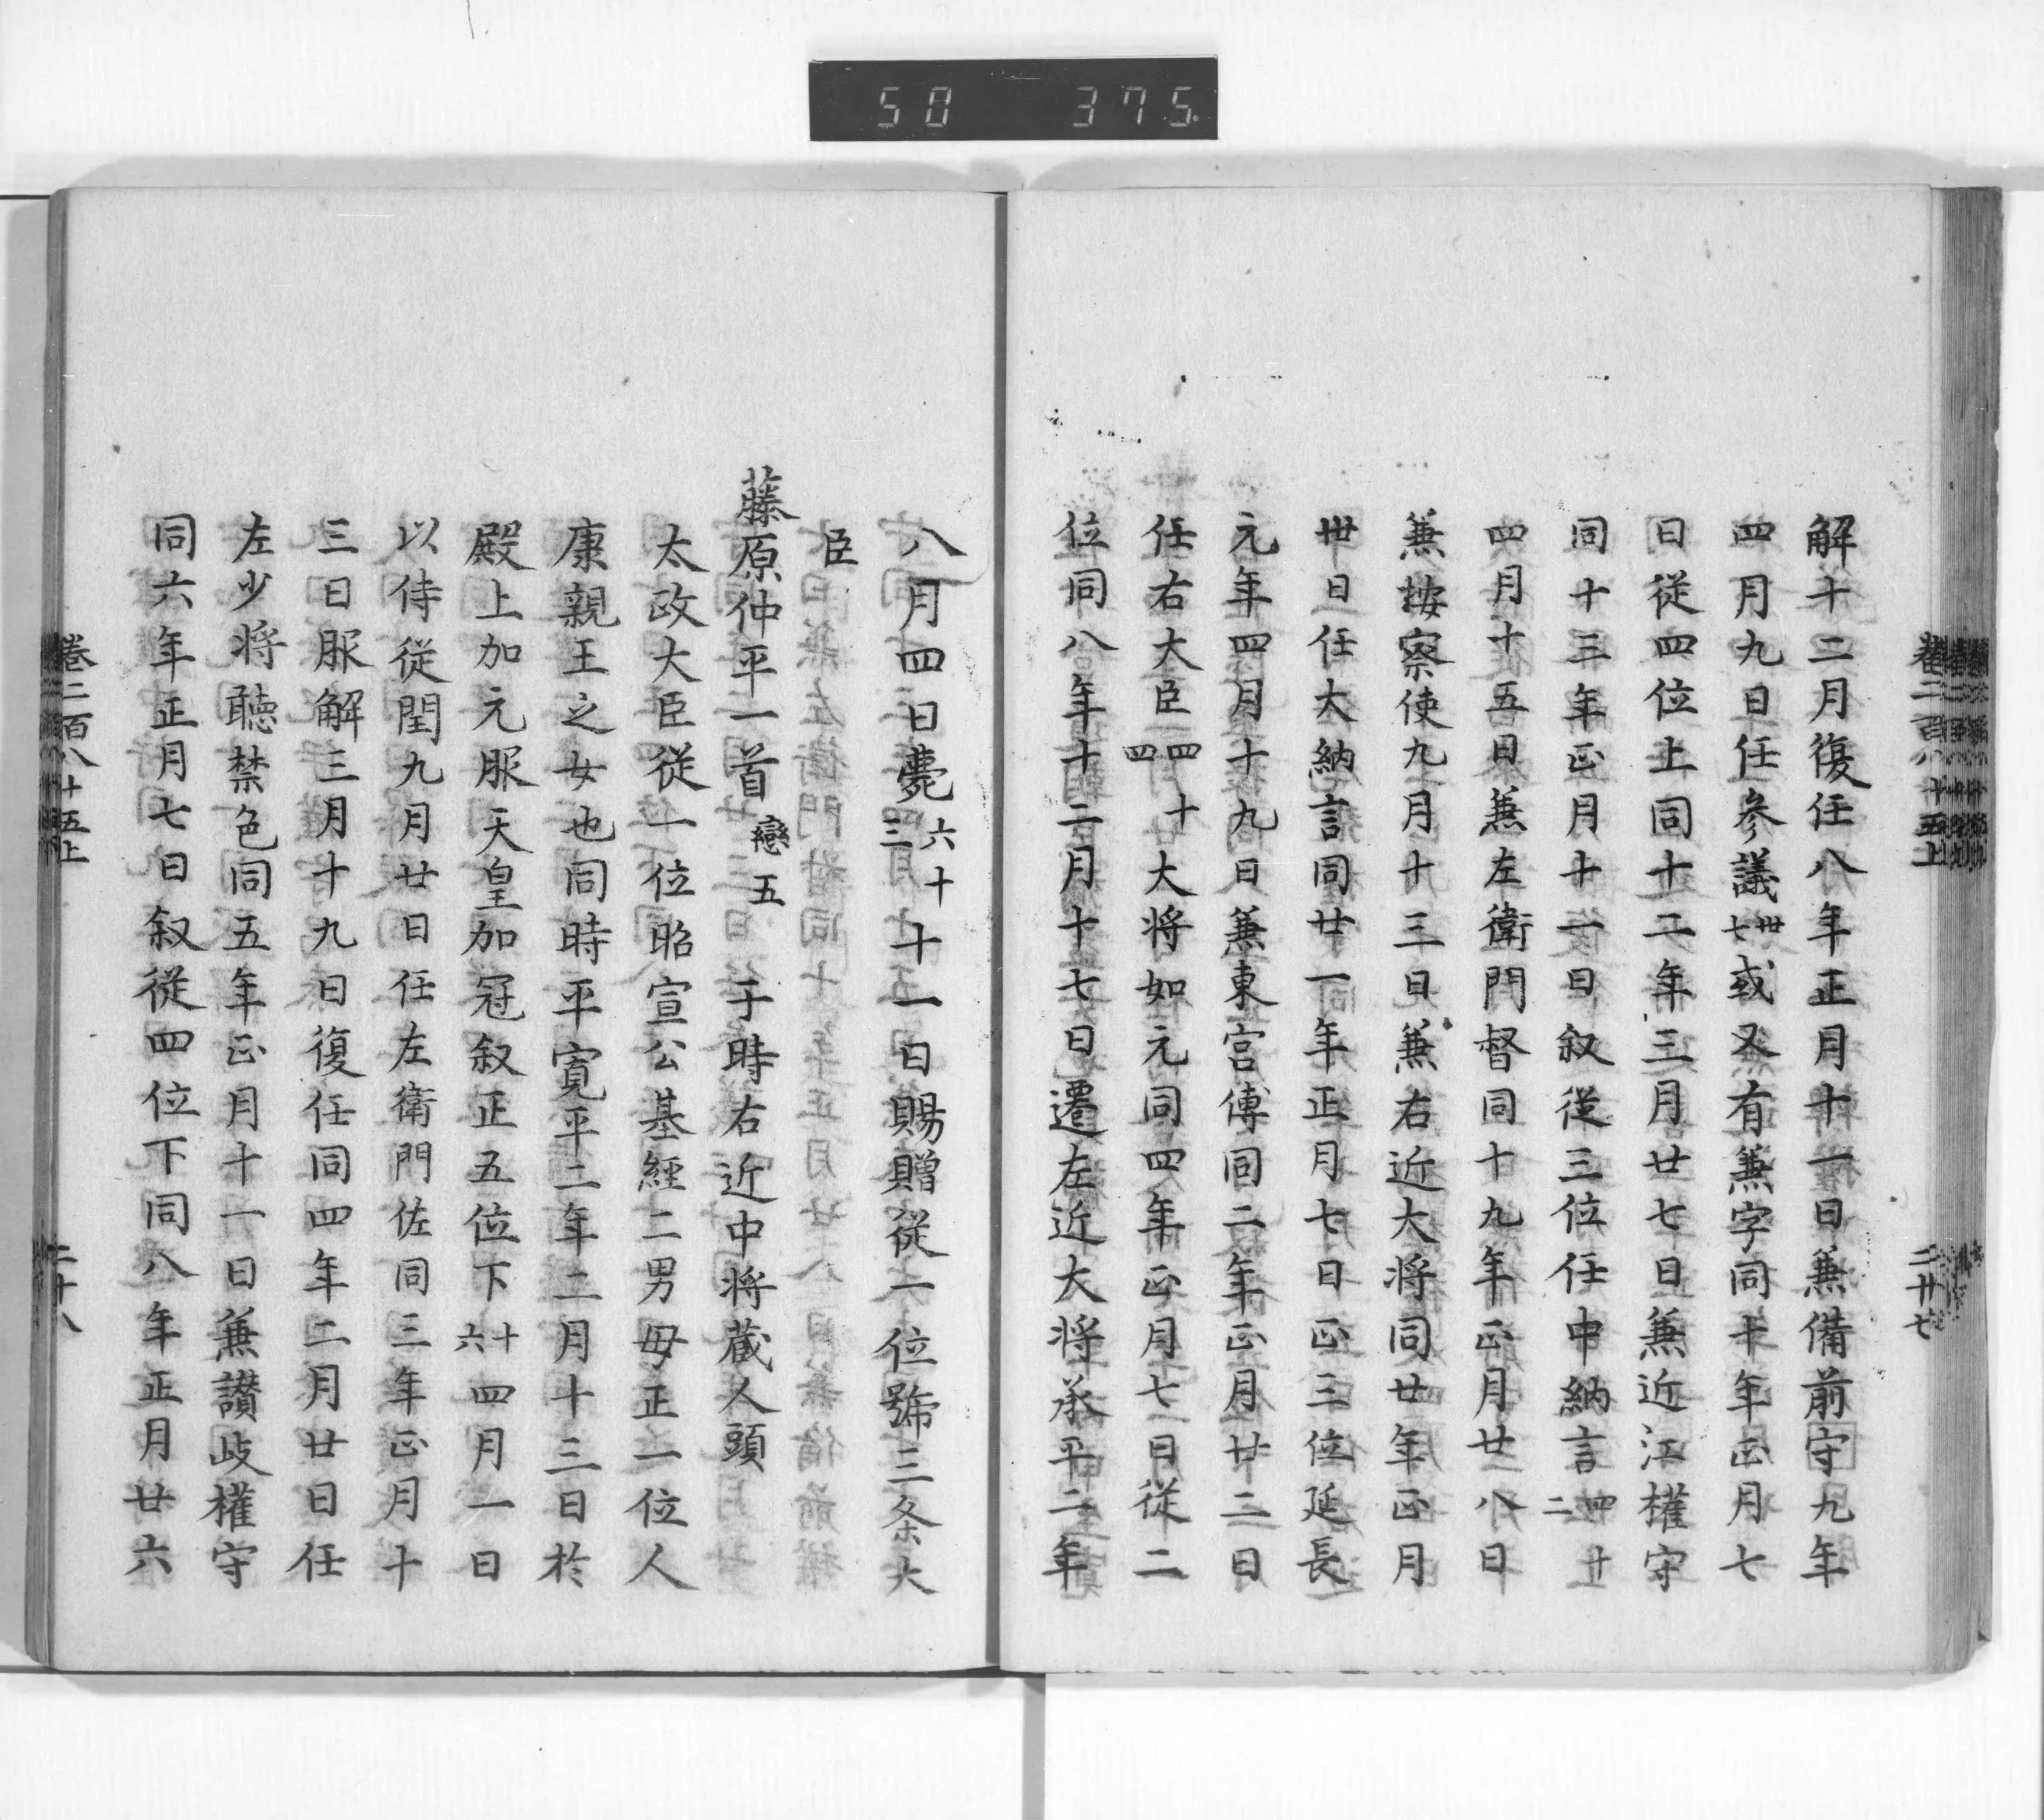 50 375
巻二百八十五上 二十七
解十二月復任八年正月十一日兼備前守九年
四月九日任参議卅七或又有兼字同十年正月七
日従四位上同十二年三月廿七日兼近江權守
同十三年正月十一日叙従三位任中納言四十二
四月十五日兼左衛門督同十九年正月廿八日
兼按察使九月十三日兼右近大将同廿年正月
卅日任大納言同廿一年正月七日正三位延長
元年四月十九日兼東宮傅同二年正月廿二日
任右大臣四十四大将如元同四年正月七日従二
位同八年十二月十七日遷左近大将承平二年
八月四日薨六十三十一日賜贈従一位號三条大
臣
藤原仲平一首戀五 于時右近中将蔵人頭
太政大臣従一位昭宣公基經二男母正一位人
康親王之女也同時平寛平二年二月十三日於
殿上加元服天皇加冠叙正五位下十六四月一日
以侍従閏九月廿日任左衛門佐同三年正月十
三日服解三月十九日復任同四年二月廿日任
左少将聴禁色同五年正月十一日兼讃岐權守
同六年正月七日叙従四位下同八年正月廿六
巻二百八十五上 二十八